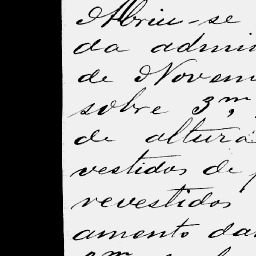 Abriu-se
da admin
de Novem
sobre 3,m
de altura
vestidos de p
revestidos
amento da